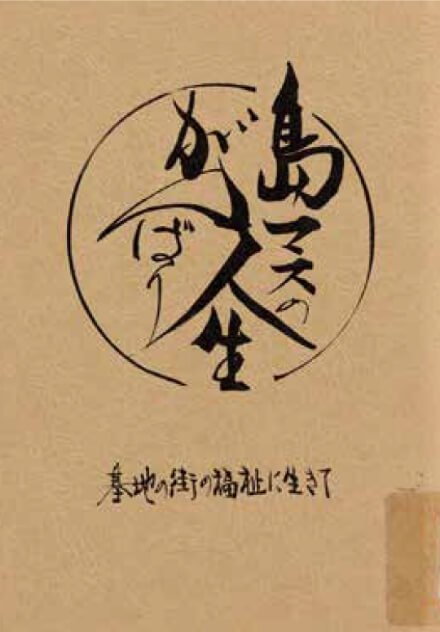 島マスの
がんばり
人生
基地の街の福祉に生きて